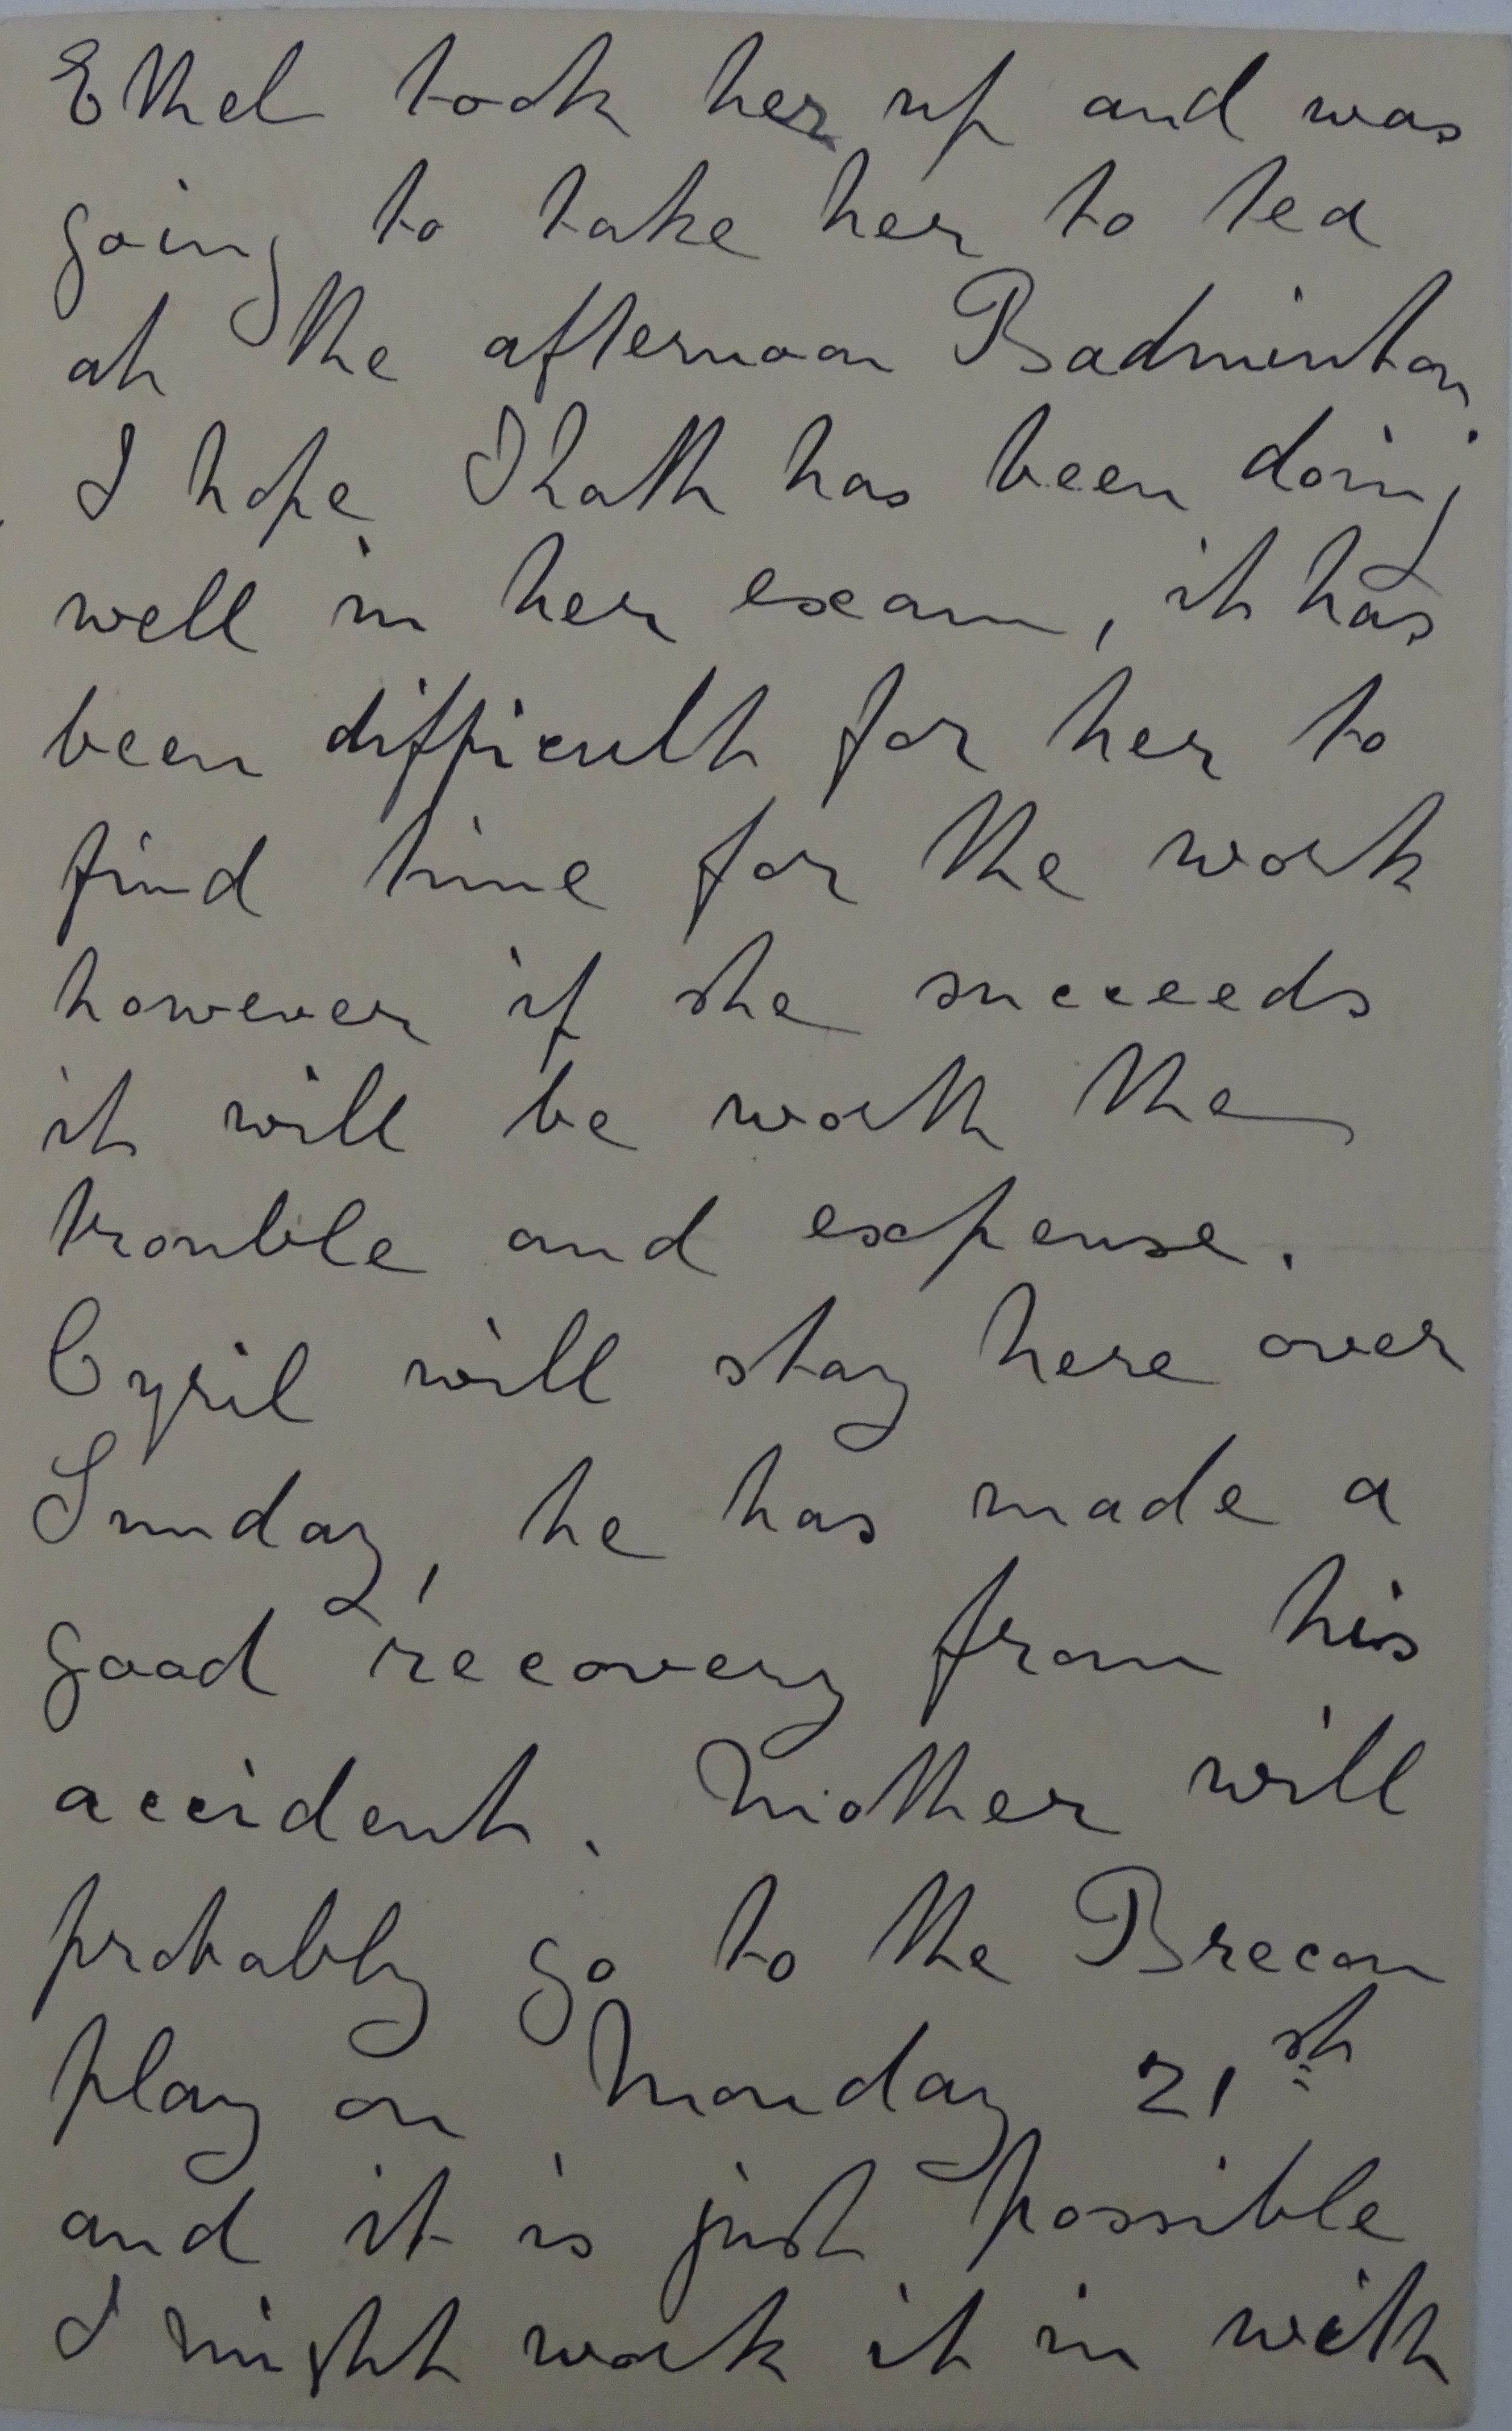 Ethel took her up and was
going to take her to tea
at the afternoon Badminton.
I hope has been doing
well in her exam, it has
been difficult for her to
find time for the work
however if she succeeds
it will be worth the
trouble and expense.
Cyril will stay here over
Sunday, he has made a
good recovery from his
accident. Mother will
probably go to the Brecon
play on Monday 21st
and it is just possible
I might work it in with